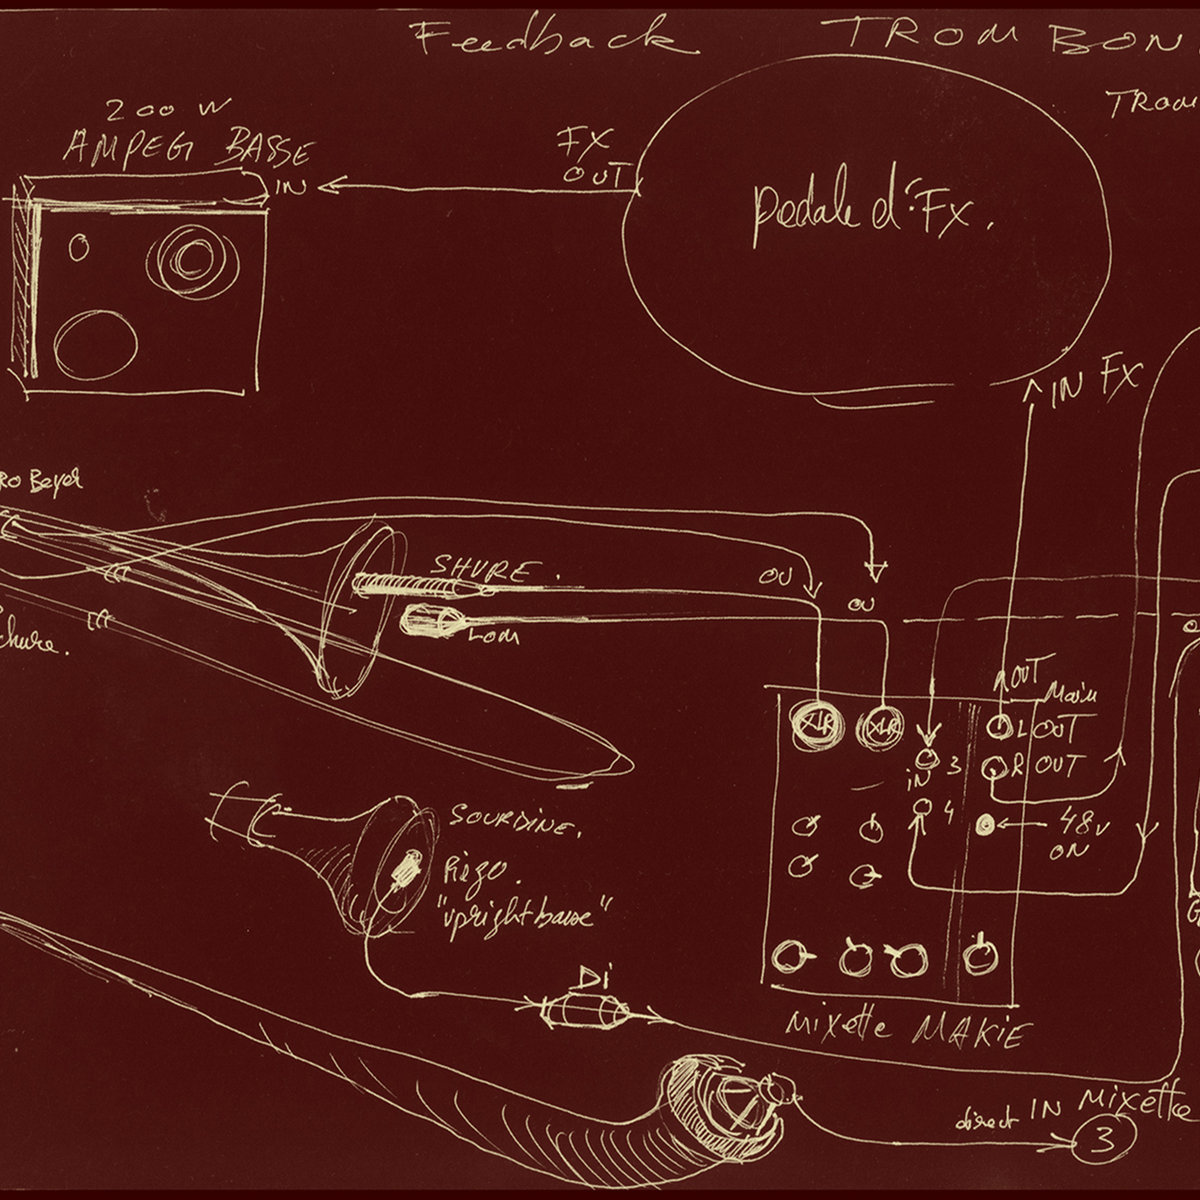 Feedback TROMBON
TROM
200 W
AMPEG BASSE
IN
FX
OUT
pedale d'Fx.
IN FX
RO Beyer
SHURE.
LOM
OU
OU
chure.
OUT
Main
XLR
XLR
L OUT
R OUT
3
IN
4
48v
ON
SOURDINE.
Piezo.
"upright basse"
Di
Mixette MAKIE
direct IN Mixette
3